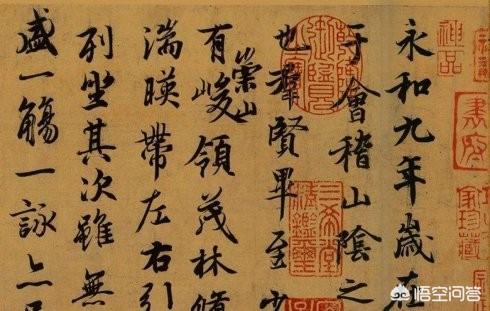 神品
永和九年歲在
于會稽山陰之
也羣賢畢至少
有崇山峻領茂林脩
湍暎帶左右引
列坐其次雖無
盛一觴一詠亦足
三希堂
精鑑璽
悟空问答